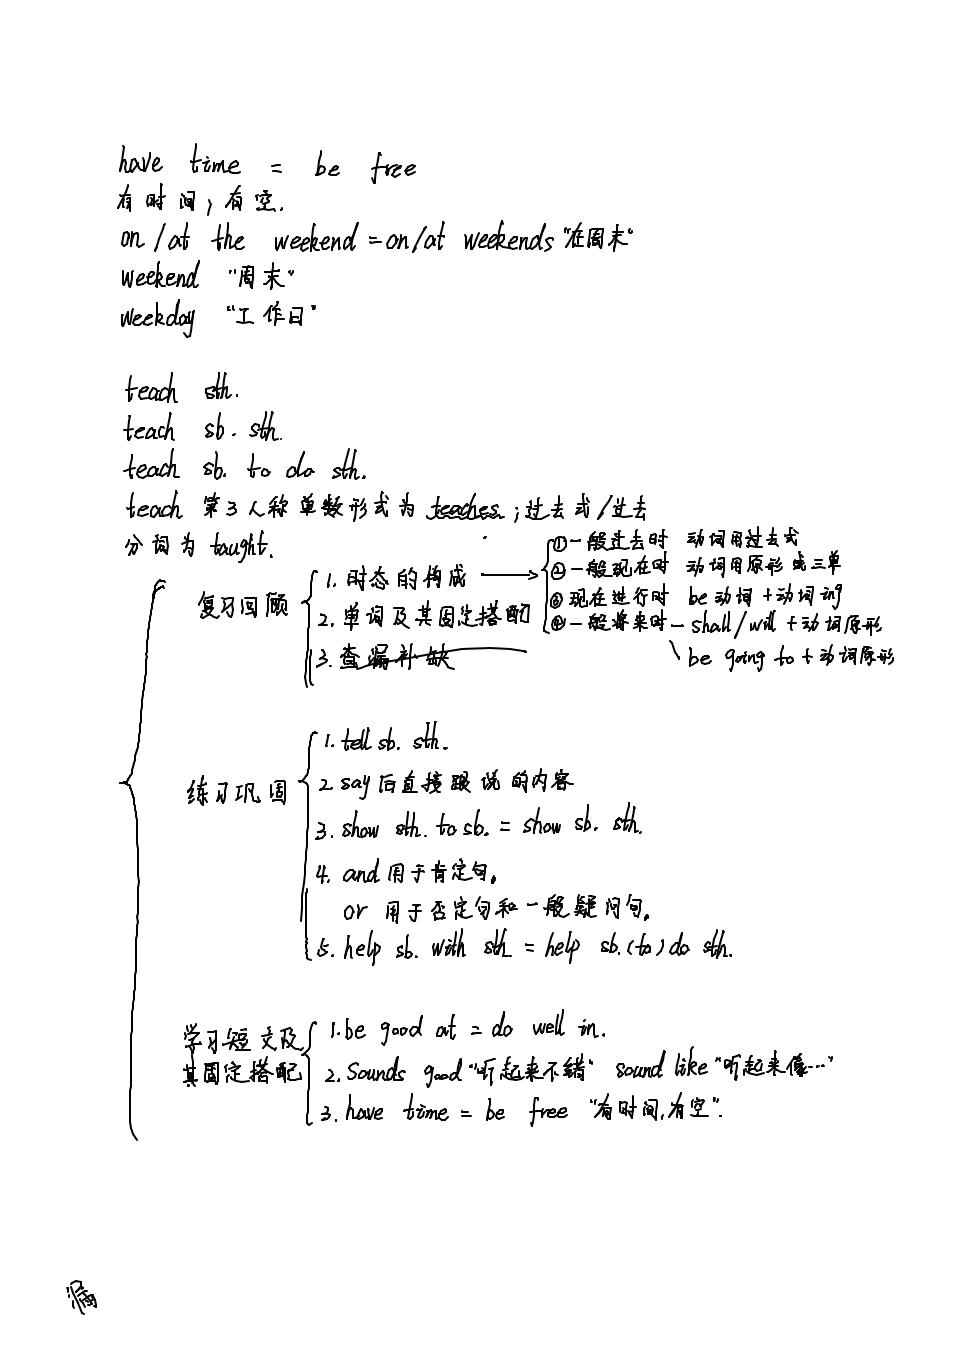 have time = be free
有时间,有空.
on/at the weekend = on/at weekends "在周末"
weekend "周末"
weekday "工作日"
teach sth.
teach sb. sth.
teach sb. to do sth.
teach 第3人称单数形式为 teaches ; 过去式/过去
分词为 taught.
复习回顾
1. 时态的构成
①一般过去时 动词用过去式
②一般现在时 动词用原形或三单
③现在进行时 be动词+动词ing
④一般将来时 shall/will+动词原形
be going to+动词原形
2. 单词及其固定搭配
3. 查漏补缺
练习巩固
1. tell sb. sth.
2. say后直接跟说的内容
3. show sth. to sb. = show sb. sth.
4. and用于肯定句。
or 用于否定句和一般疑问句。
5. help sb. with sth = help sb.(to)do sth.
学习短文及
其固定搭配
1. be good at = do well in.
2. Sounds good "听起来不错" sound like "听起来像…"
3. have time = be free "有时间,有空".
漏